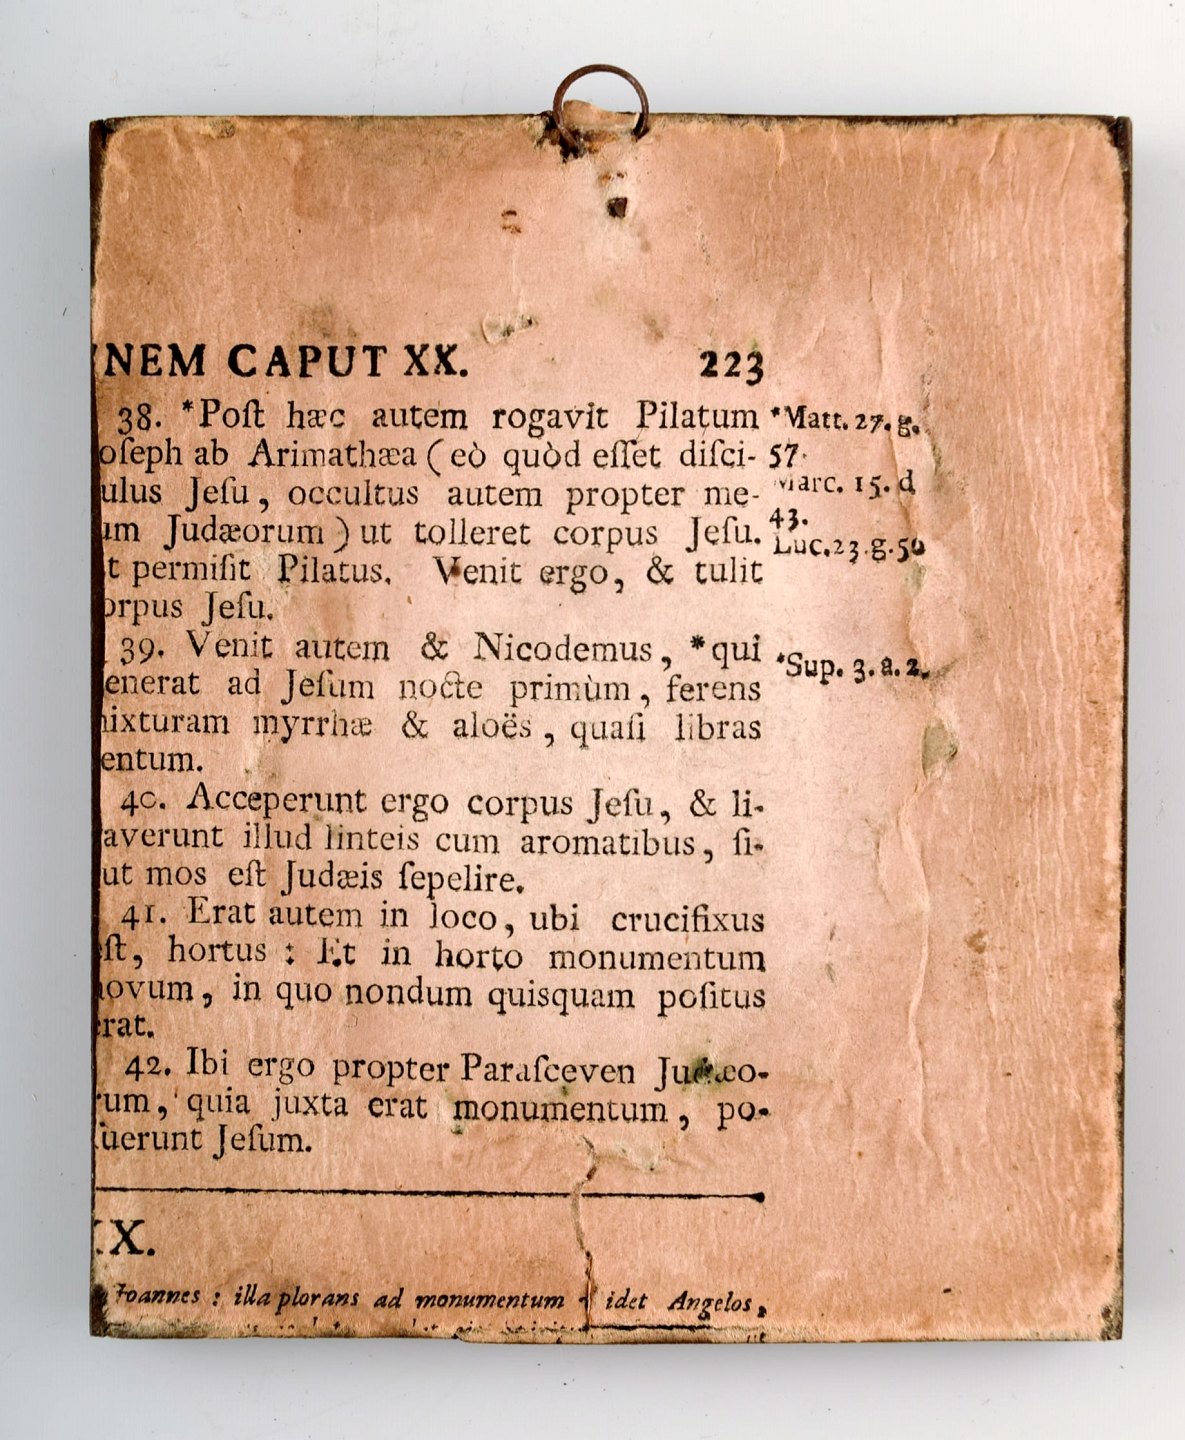 NEM CAPUT XX. 223
38. *Poſt hæc autem rogavit Pilatum
oſeph ab Arimathæa (eò quòd eſſet diſci-
ulus Jeſu, occultus autem propter me-
um Judæorum) ut tolleret corpus Jeſu.
t permiſit Pilatus. Venit ergo, & tulit
orpus Jeſu.
39. Venit autem & Nicodemus, *qui
enerat ad Jeſum nocte primùm, ferens
ixturam myrrhæ & aloës, quaſi libras
entum.
40. Acceperunt ergo corpus Jeſu, & li-
averunt illud linteis cum aromatibus, ſi-
ut mos eſt Judæis ſepelire.
41. Erat autem in loco, ubi crucifixus
ſt, hortus : Et in horto monumentum
ovum, in quo nondum quisquam poſitus
rat.
42. Ibi ergo propter Paraſceven Judæo-
um, quia juxta erat monumentum, po-
uerunt Jeſum.
*Matt. 27. g.
57.
Marc. 15. d
43.
Luc. 23. g. 50
*Sup. 3. a. 2.
X.
Joannes : illa plorans ad monumentum idet Angelos,